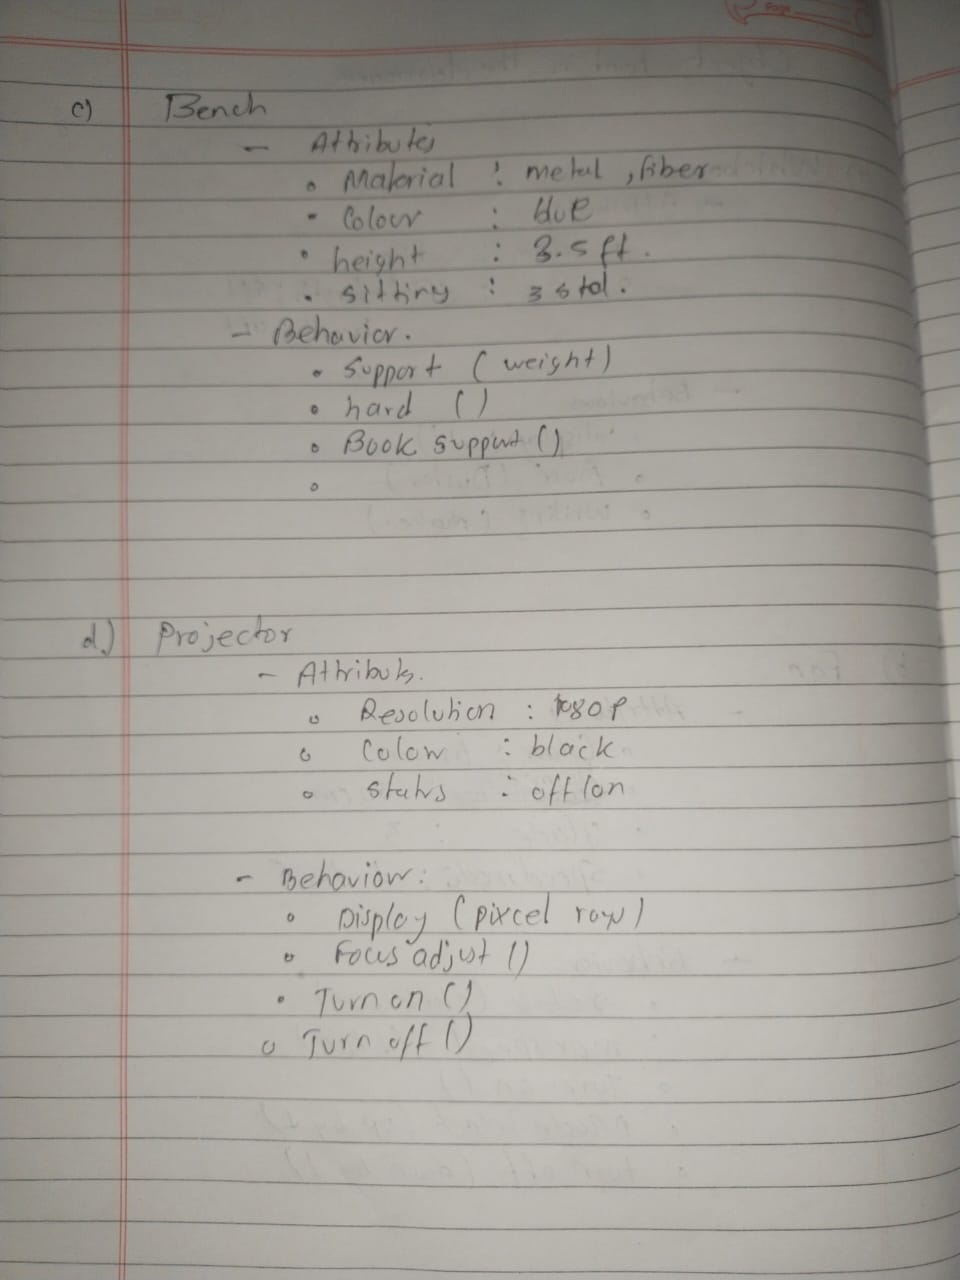 Page
c) Bench
- Attributes
• Material : metal , fiber
• Colour : blue
• height : 3.5 ft.
• sitting : 3 stol.
- Behavior.
• Support ( weight)
• hard ()
• Book support ()
d) Projector
- Attributs.
• Resolution : 1080P
• Colour : black
• status : off/on
- Behaviour:
• Display (pixcel row)
• Focus adjust ()
• Turn on ()
• Turn off ()